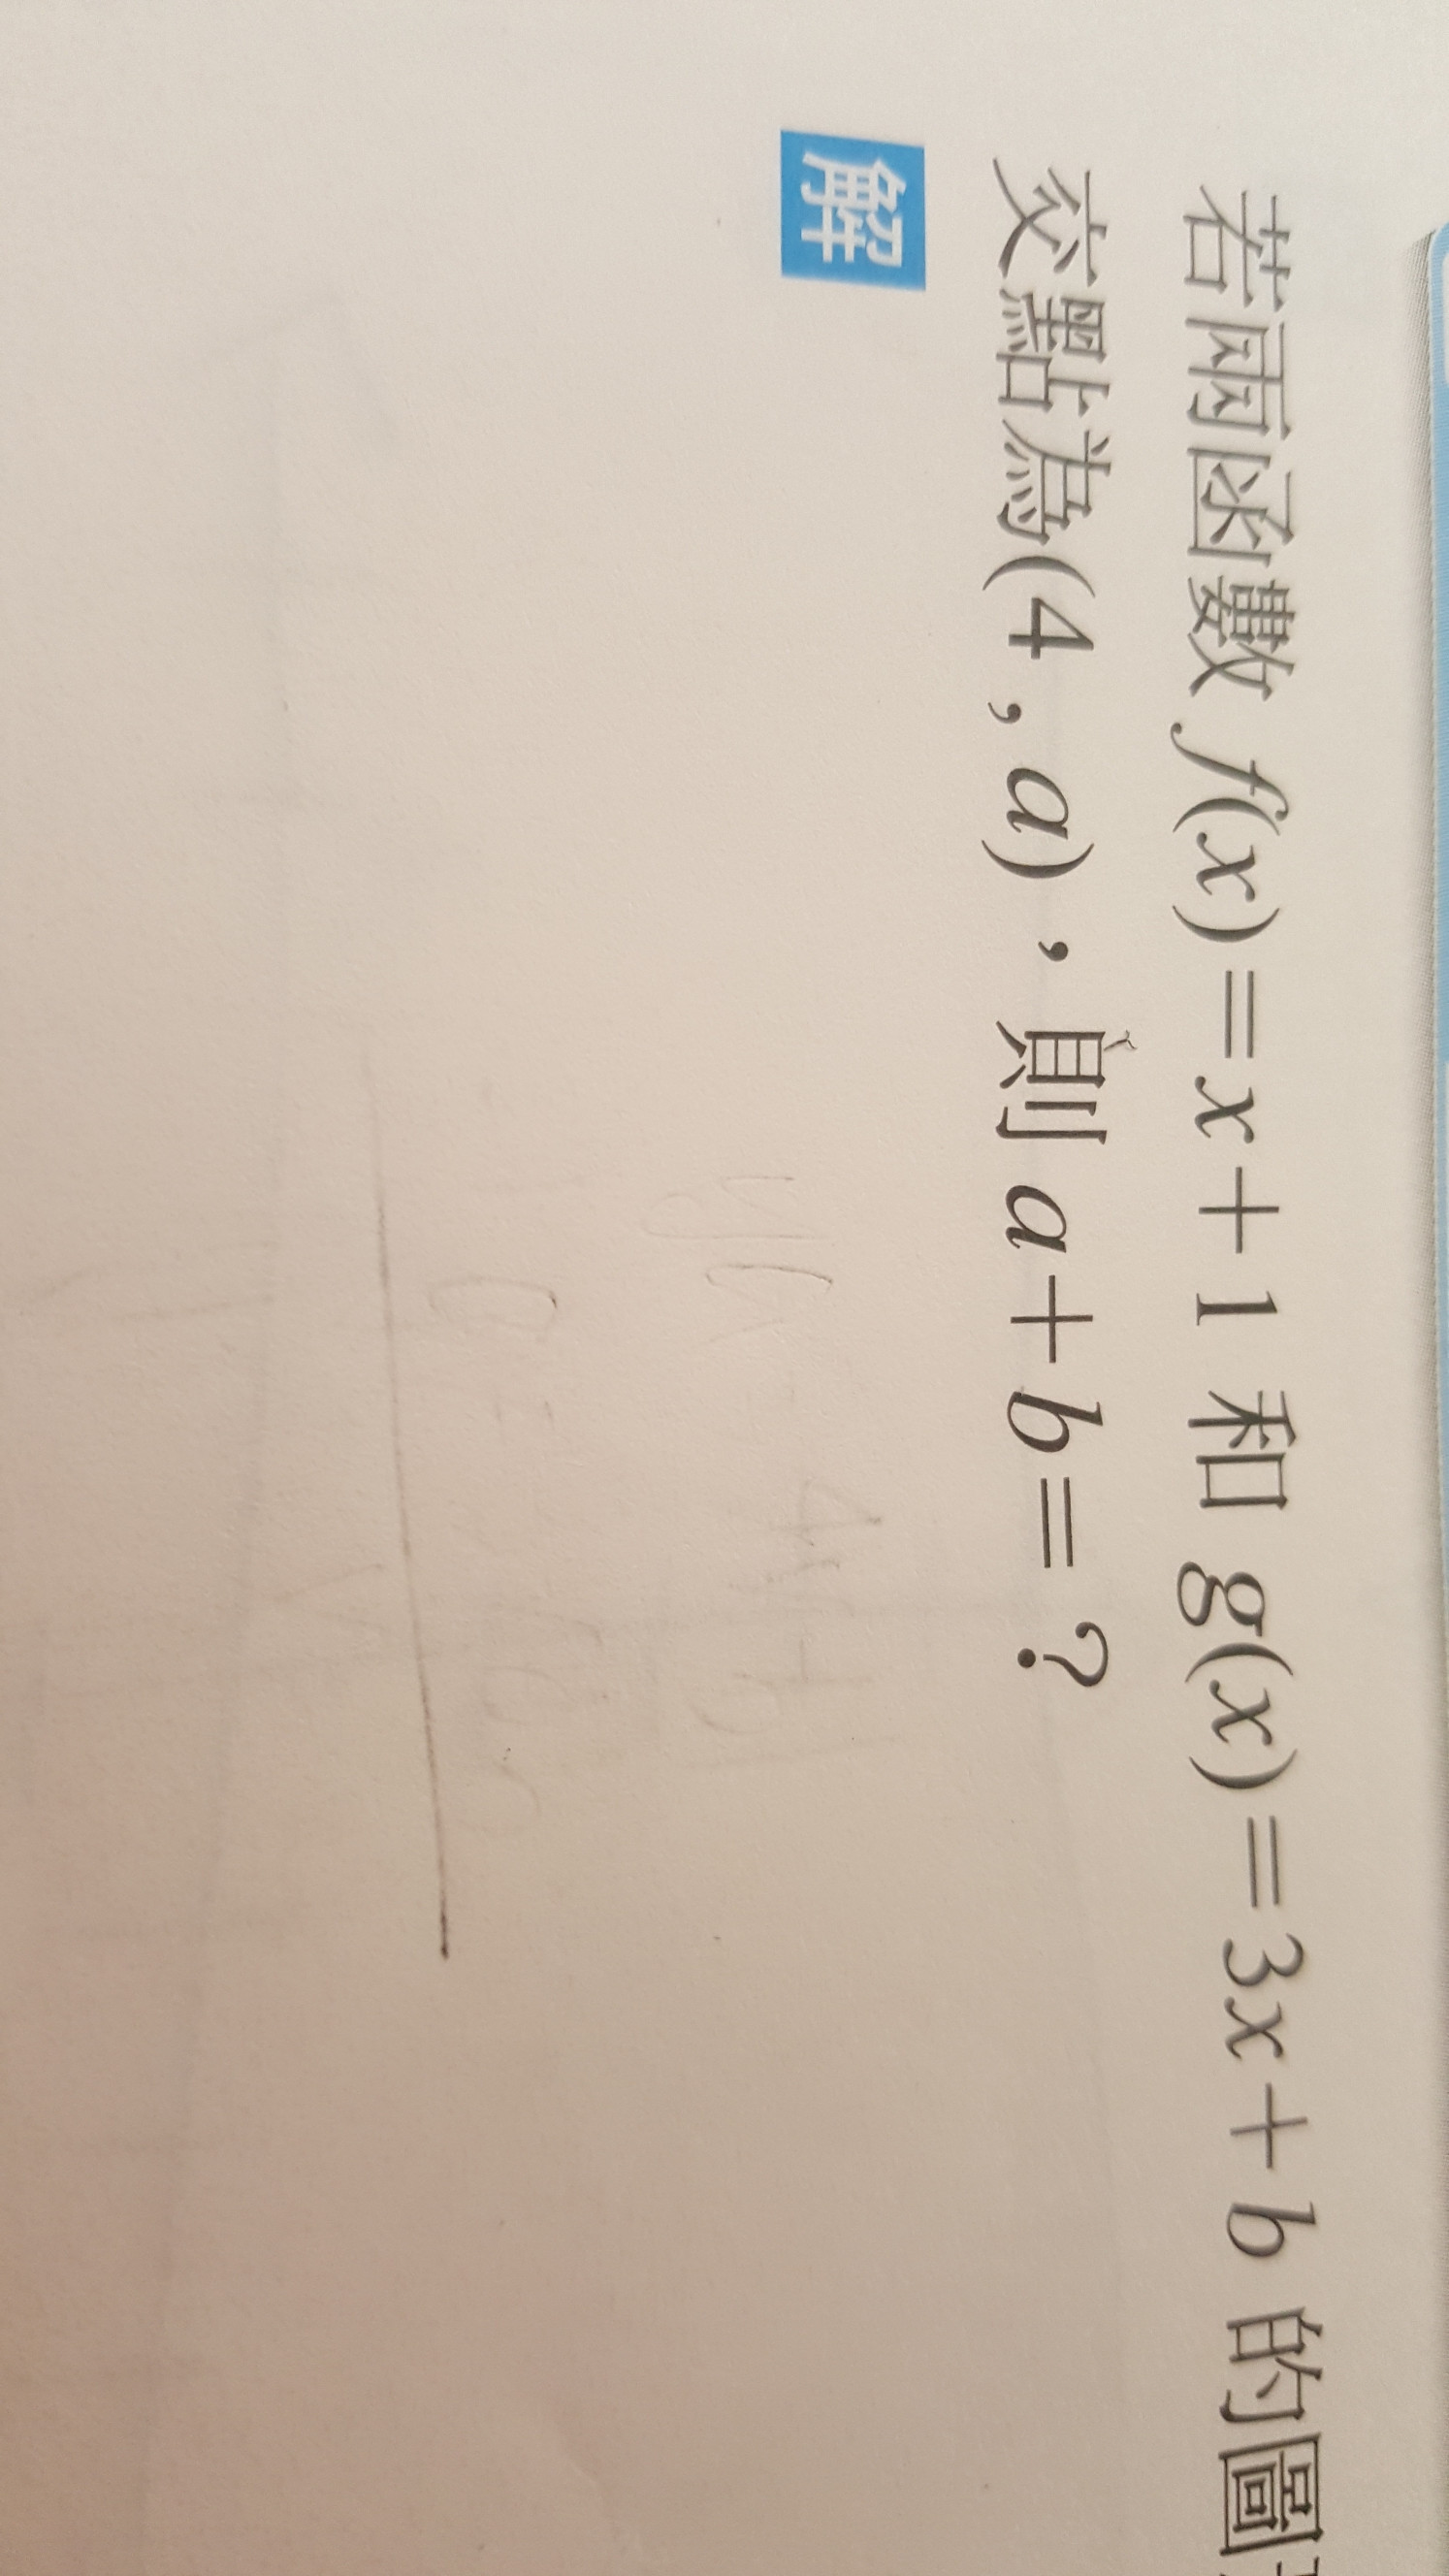 若兩函數 f(x)=x+1 和 g(x)=3x+b 的圖
交點為(4 , a)，則 a+b=？
解